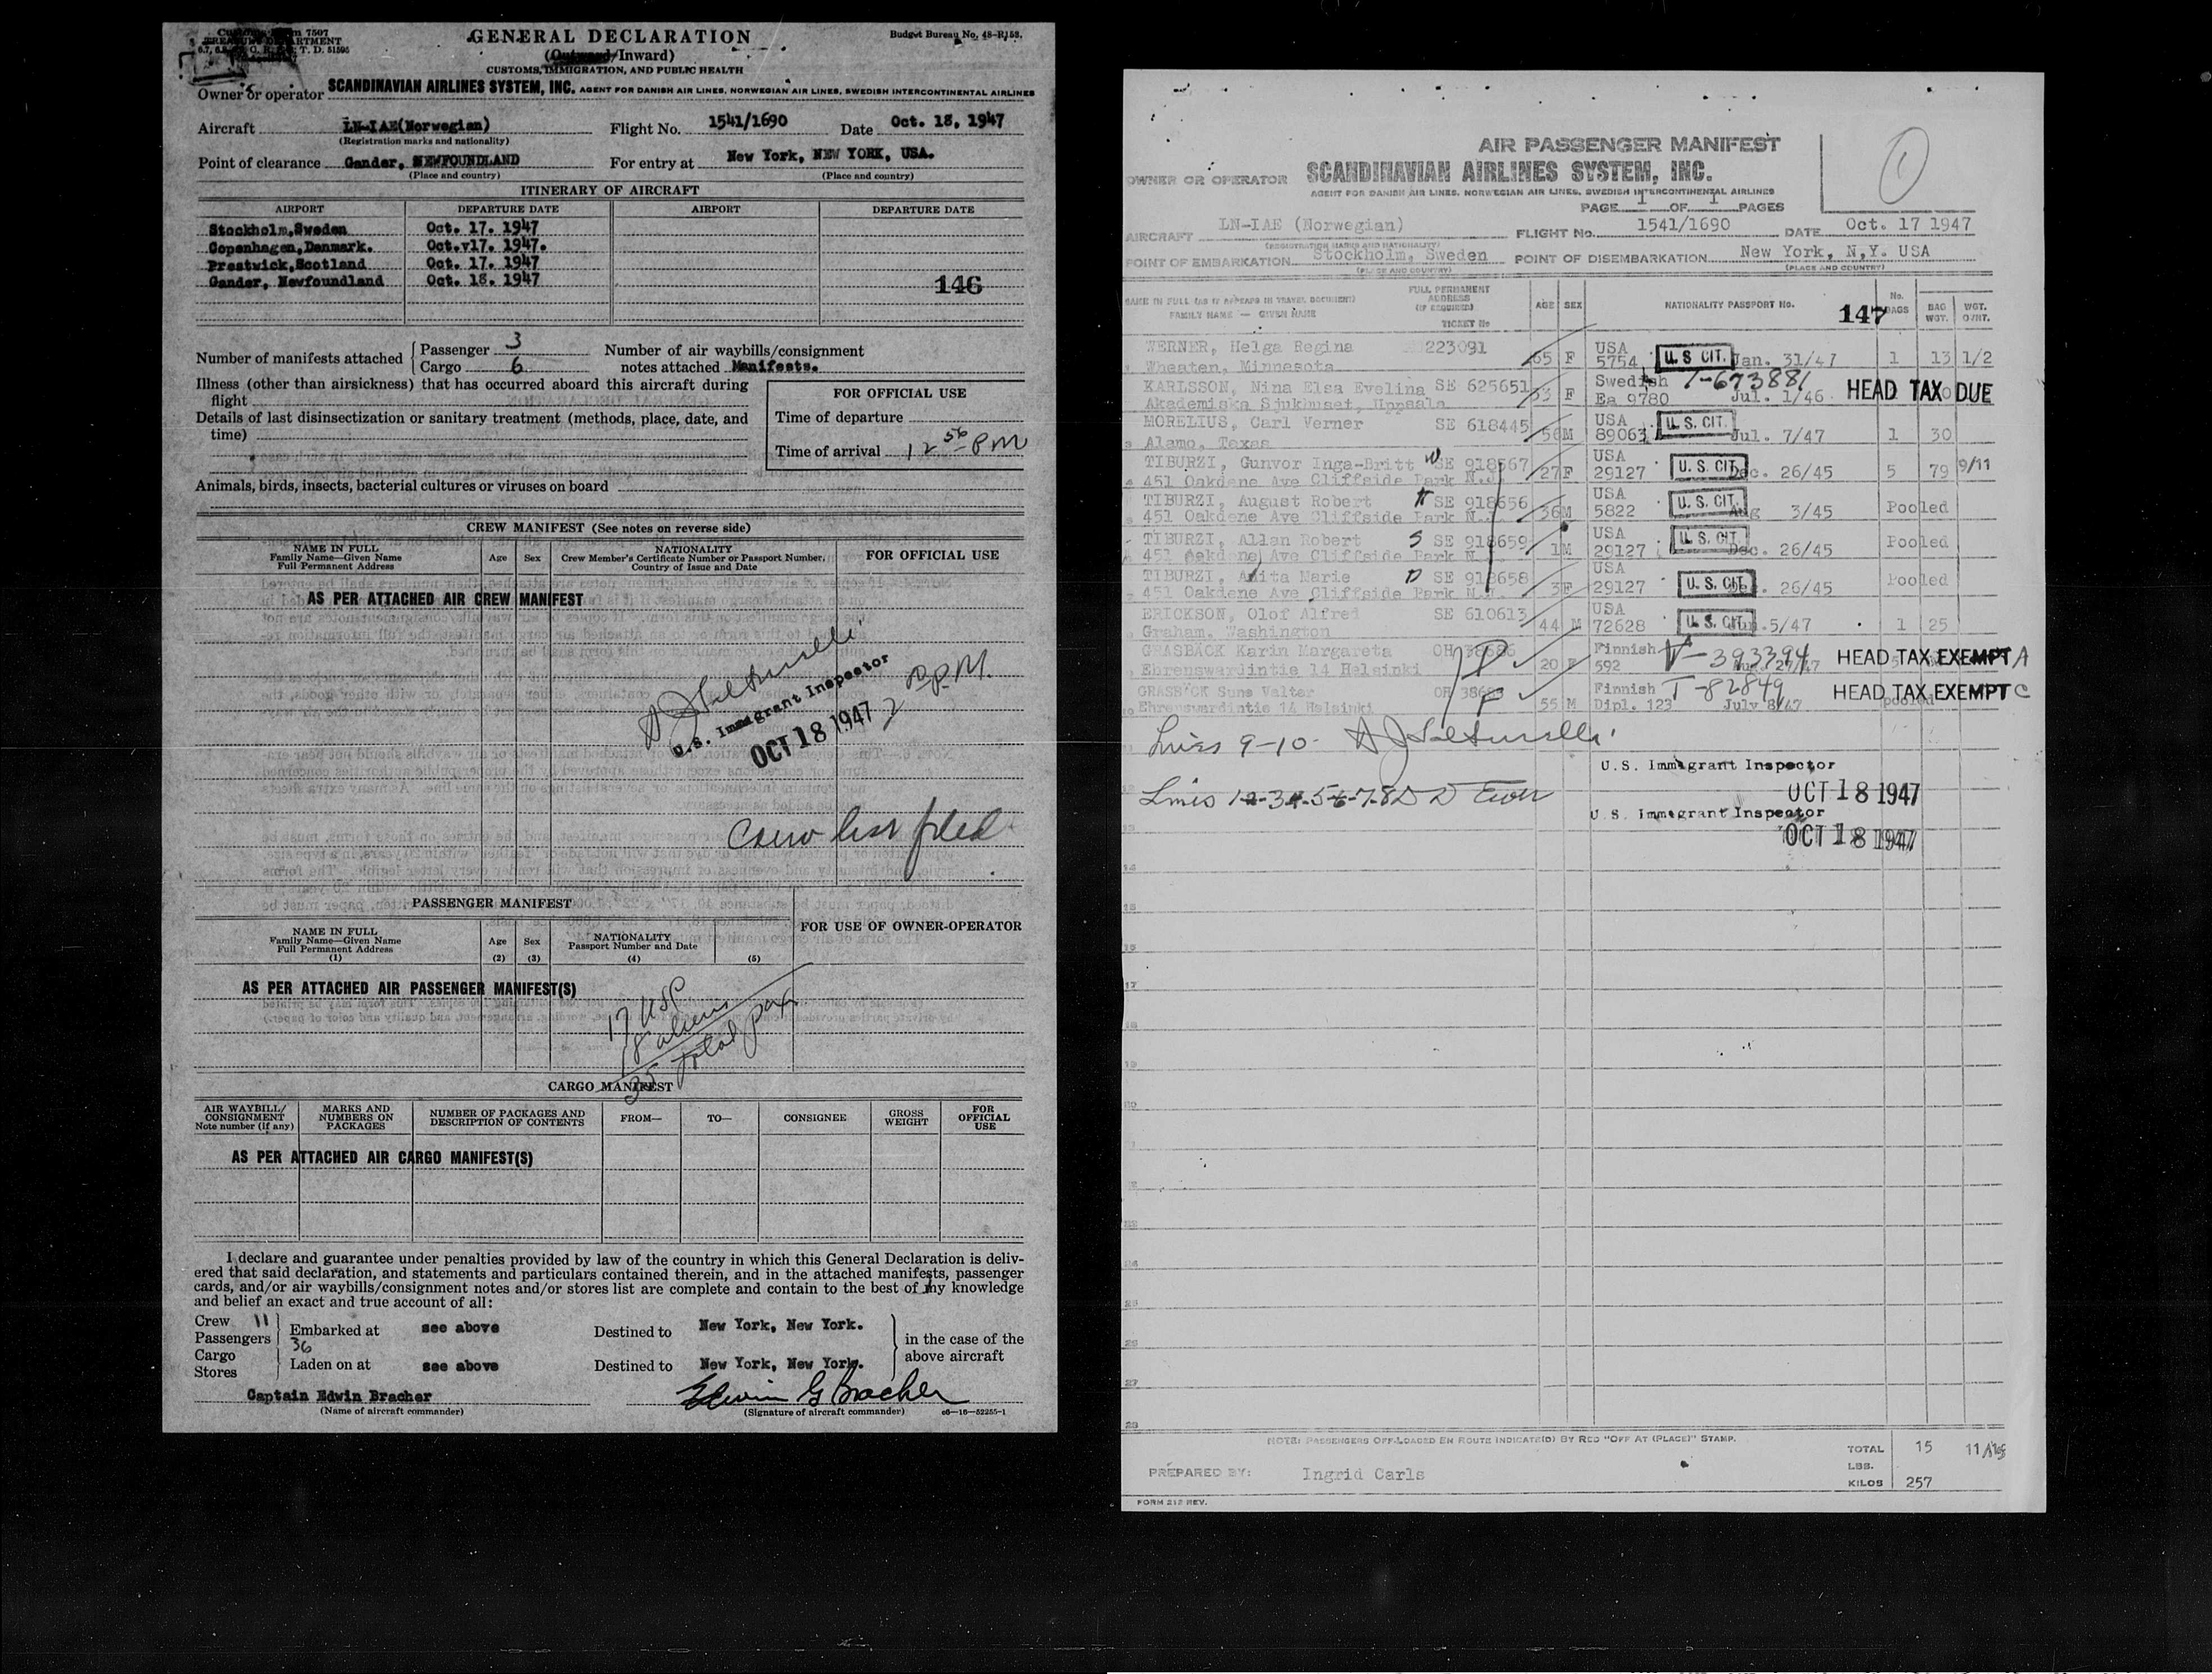 Customs Form 7507
TREASURY DEPARTMENT
T. D. 51595
GENERAL DECLARATION
(Outward/Inward)
CUSTOMS, IMMIGRATION, AND PUBLIC HEALTH
Budget Bureau No. 48-R153.
Owner or operator SCANDINAVIAN AIRLINES SYSTEM, INC. AGENT FOR DANISH AIR LINES, NORWEGIAN AIR LINES, SWEDISH INTERCONTINENTAL AIRLINES
Aircraft LN-IAE(Norwegian) Flight No. 1541/1690 Date Oct. 18, 1947
(Registration marks and nationality)
Point of clearance Gander, NEWFOUNDLAND For entry at New York, NEW YORK, USA.
(Place and country) (Place and country)
ITINERARY OF AIRCRAFT
AIRPORT DEPARTURE DATE AIRPORT DEPARTURE DATE
Stockholm,Sweden Oct. 17. 1947
Copenhagen,Denmark. Oct.v17. 1947.
Prestwick,Scotland Oct. 17. 1947
Gander, Newfoundland Oct. 18. 1947 146
Number of manifests attached Passenger 3 Number of air waybills/consignment
Cargo 6 notes attached Manifests.
Illness (other than airsickness) that has occurred aboard this aircraft during
flight
Details of last disinsectization or sanitary treatment (methods, place, date, and
time)
FOR OFFICIAL USE
Time of departure
Time of arrival 12 56 PM
Animals, birds, insects, bacterial cultures or viruses on board
CREW MANIFEST (See notes on reverse side)
NAME IN FULL
Family Name—Given Name
Full Permanent Address
Age Sex
NATIONALITY
Crew Member's Certificate Number or Passport Number,
Country of Issue and Date
FOR OFFICIAL USE
AS PER ATTACHED AIR CREW MANIFEST
U.S. Immigrant Inspector
OCT 18 1947 2 P.M.
Crew list filed
PASSENGER MANIFEST
NAME IN FULL
Family Name—Given Name
Full Permanent Address
(1)
Age (2) Sex (3)
NATIONALITY
Passport Number and Date
(4) (5)
FOR USE OF OWNER-OPERATOR
AS PER ATTACHED AIR PASSENGER MANIFEST(S)
17 USC
18 aliens
35 total pax
CARGO MANIFEST
AIR WAYBILL/
CONSIGNMENT
Note number (if any)
MARKS AND
NUMBERS ON
PACKAGES
NUMBER OF PACKAGES AND
DESCRIPTION OF CONTENTS
FROM— TO— CONSIGNEE
GROSS
WEIGHT
FOR
OFFICIAL
USE
AS PER ATTACHED AIR CARGO MANIFEST(S)
I declare and guarantee under penalties provided by law of the country in which this General Declaration is deliv-
ered that said declaration, and statements and particulars contained therein, and in the attached manifests, passenger
cards, and/or air waybills/consignment notes and/or stores list are complete and contain to the best of my knowledge
and belief an exact and true account of all:
Crew 11
Passengers 36 Embarked at see above Destined to New York, New York. in the case of the
Cargo above aircraft
Stores Laden on at see above Destined to New York, New York.
Captain Edwin Bracher Edwin G Bracher
(Name of aircraft commander) (Signature of aircraft commander) c6—16—52255-1
AIR PASSENGER MANIFEST
OWNER OR OPERATOR SCANDINAVIAN AIRLINES SYSTEM, INC.
AGENT FOR DANISH AIR LINES, NORWEGIAN AIR LINES, SWEDISH INTERCONTINENTAL AIRLINES
PAGE 1 OF 1 PAGES
1
AIRCRAFT LN-IAE (Norwegian) FLIGHT No. 1541/1690 DATE Oct. 17 1947
(REGISTRATION MARKS AND NATIONALITY)
POINT OF EMBARKATION Stockholm, Sweden POINT OF DISEMBARKATION New York, N,Y. USA
(PLACE AND COUNTRY) (PLACE AND COUNTRY)
NAME IN FULL (AS IT APPEARS IN TRAVEL DOCUMENT)
FAMILY NAME — GIVEN NAME
FULL PERMANENT
ADDRESS
(IF REQUIRED)
TICKET No
AGE SEX NATIONALITY PASSPORT No. 147 No. BAGS BAG WGT. WGT. O/HT.
WERNER, Helga Regina 223091 65 F USA
Wheaten, Minnesota 5754 U. S CIT. Jan. 31/47 1 13 1/2
KARLSSON, Nina Elsa Evelina SE 625651 33 F Swedish T-673881 HEAD TAX DUE
Akademiska Sjukhuset, Uppsala Ea 9780 Jul. 1/46
MORELIUS, Carl Verner SE 618445 56 M USA
Alamo, Texas 89063 U. S. CIT. Jul. 7/47 1 30
TIBURZI, Gunvor Inga-Britt W SE 918567 27 F USA
451 Oakdene Ave Cliffside Park N.J. 29127 U. S. CIT. Dec. 26/45 5 79 9/11
TIBURZI, August Robert H SE 918656 36 M USA
451 Oakdene Ave Cliffside Park N.J. 5822 U. S. CIT. Aug 3/45 Pooled
TIBURZI, Allan Robert S SE 918659 1 M USA
451 Oakdene Ave Cliffside Park N.J. 29127 U. S. CIT. Dec. 26/45 Pooled
TIBURZI, Anita Marie D SE 918658 3 F USA
451 Oakdene Ave Cliffside Park N.J. 29127 U. S. CIT. Dec. 26/45 Pooled
ERICKSON, Olof Alfred SE 610613 44 M USA
Graham, Washington 72628 U. S. CIT. Jun. 5/47 1 25
GRASBÄCK Karin Margareta OH 38686 20 F Finnish V-393394 HEAD TAX EXEMPT A
Ehrenswardintie 14 Helsinki 592 Aug. 27/47
GRASBÄCK Sune Valter OH 55 M Finnish T-82849 HEAD TAX EXEMPT C
Ehrenswardintie 14 Helsinki Dipl. 123 July 8/47 pooled
Lines 9-10
U.S. Immigrant Inspector
OCT 18 1947
Lines 1-2-3-4-5-6-7-8
U.S. Immigrant Inspector
OCT 18 1947
14
15
17
18
19
27
28
NOTE: PASSENGERS OFF-LOADED EN ROUTE INDICATE(D) BY RED "OFF AT (PLACE)" STAMP.
TOTAL 15
LBS.
KILOS 257
PREPARED BY: Ingrid Carls
FORM 212 REV.